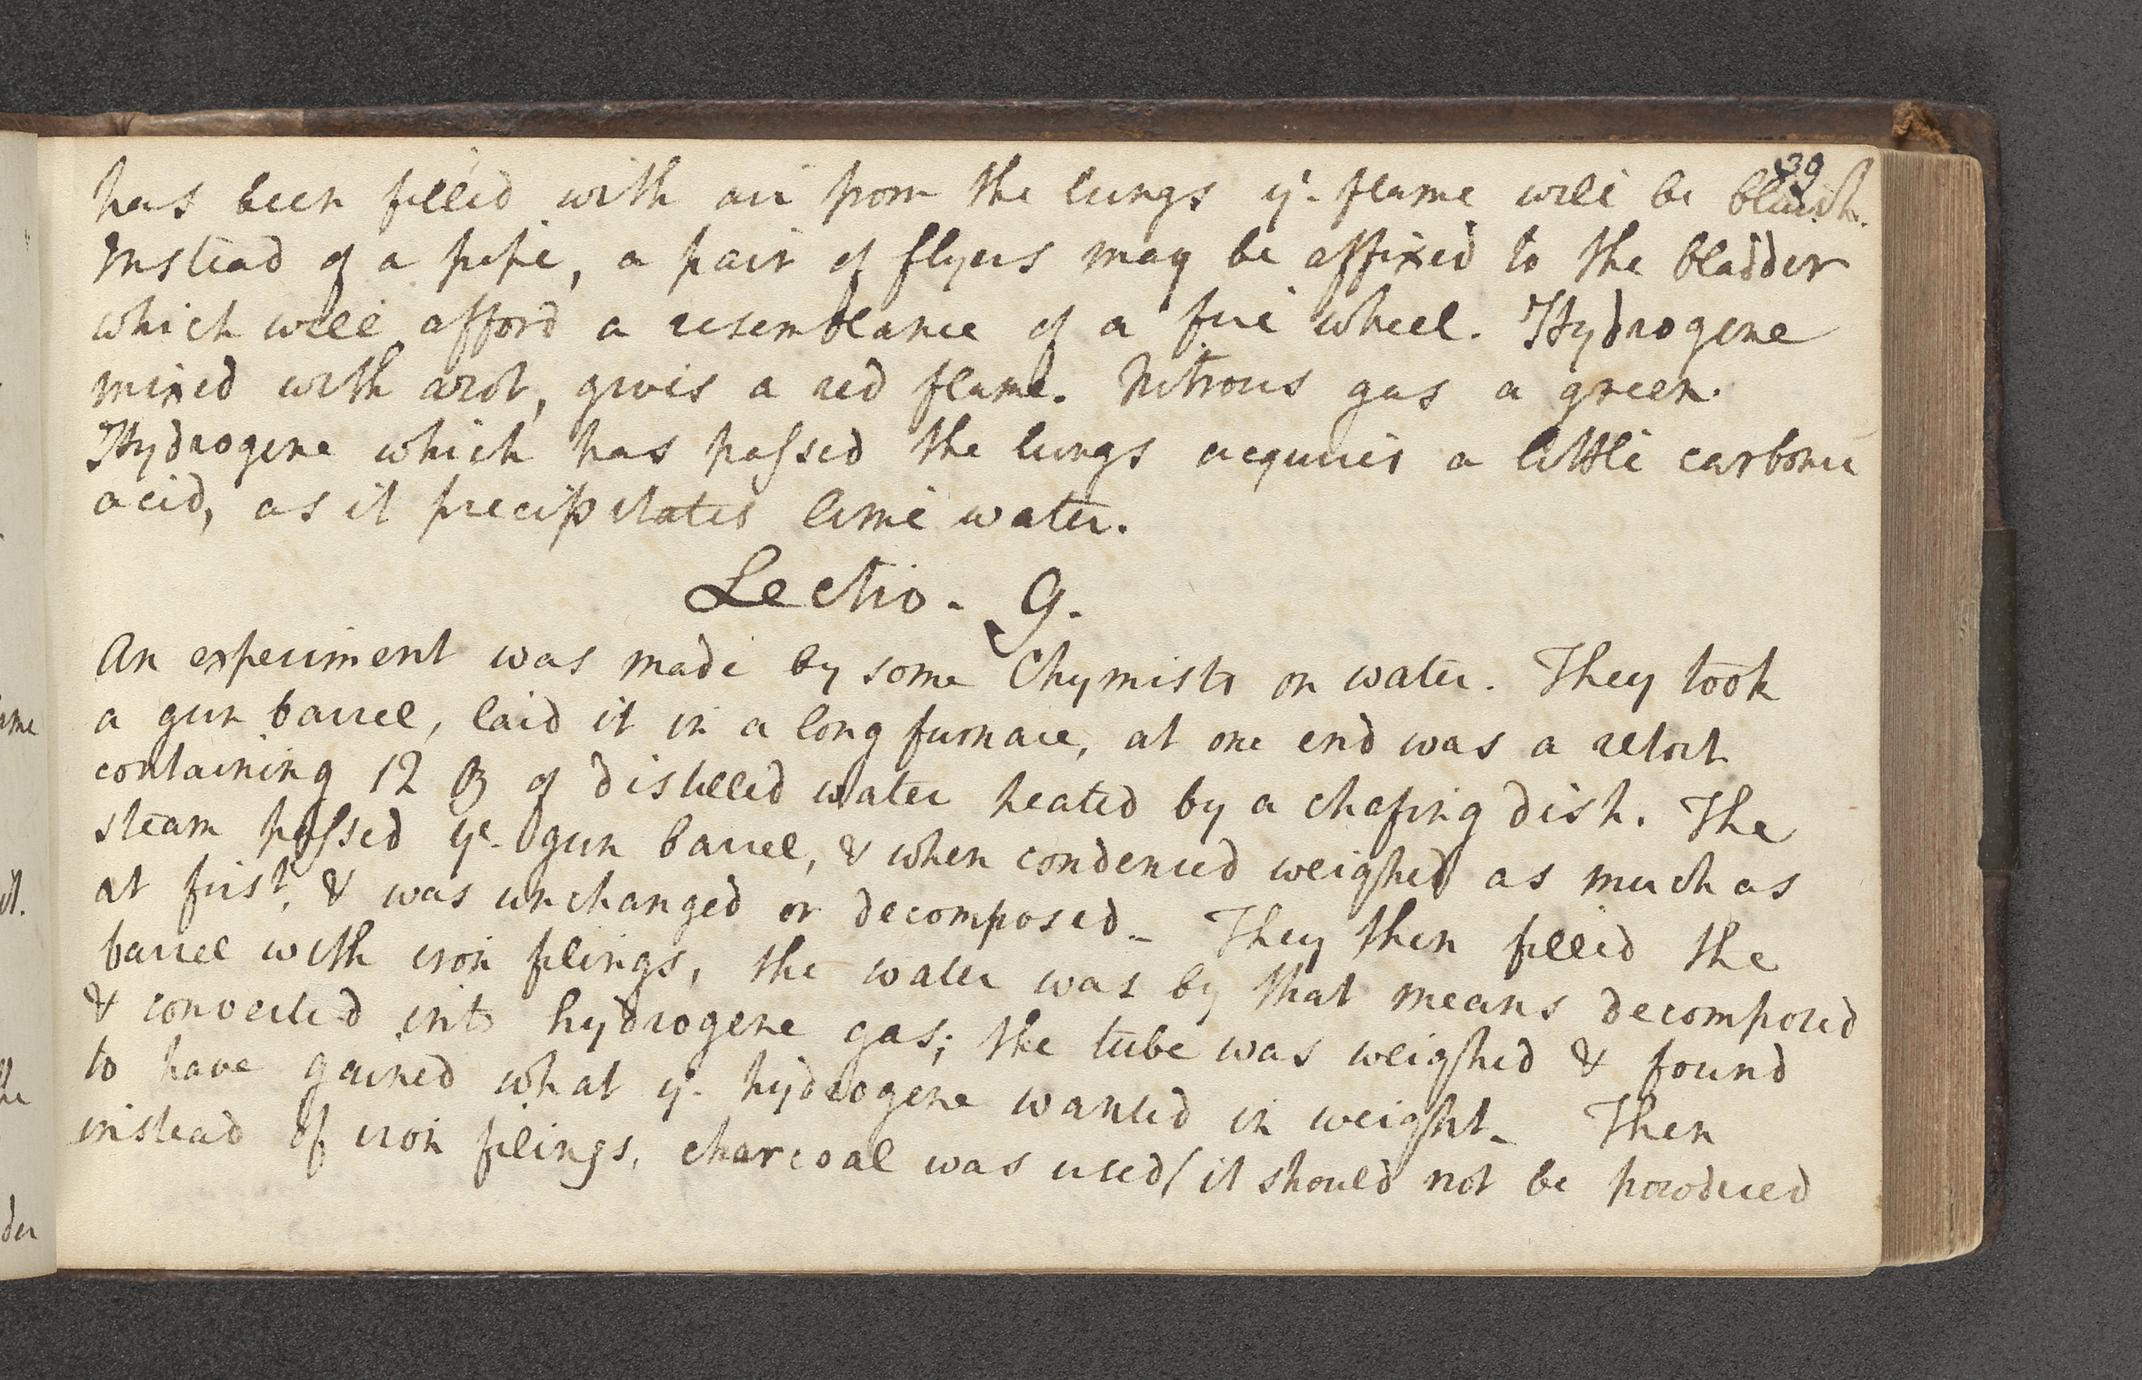 39
has been filled with air from the lungs ye. flame will be bluish.
Instead of a pipe, a pair of flyers may be affixed to the bladder
which will afford a resemblance of a fire wheel. Hydrogene
mixed with azot, gives a red flame. Nitrous gas a green.
Hydrogene which has passed the lungs acquires a little carbonic
acid, as it precipitates lime water.
Lectio. 9.
An experiment was made by some Chymists on water. They took
a gun barrel, laid it in a long furnace, at one end was a retort
containing 12 ℥ of distilled water heated by a chafing dish. The
steam passed ye. gun barrel, & when condensed weighed as much as
at first, & was unchanged or decomposed_ They then filled the
barrel with iron filings, the water was by that means decomposed
& converted into hydrogene gas; the tube was weighed & found
to have gained what ye. hydrogene wanted in weight_ Then
instead of iron filings, charcoal was used/it should not be powdered